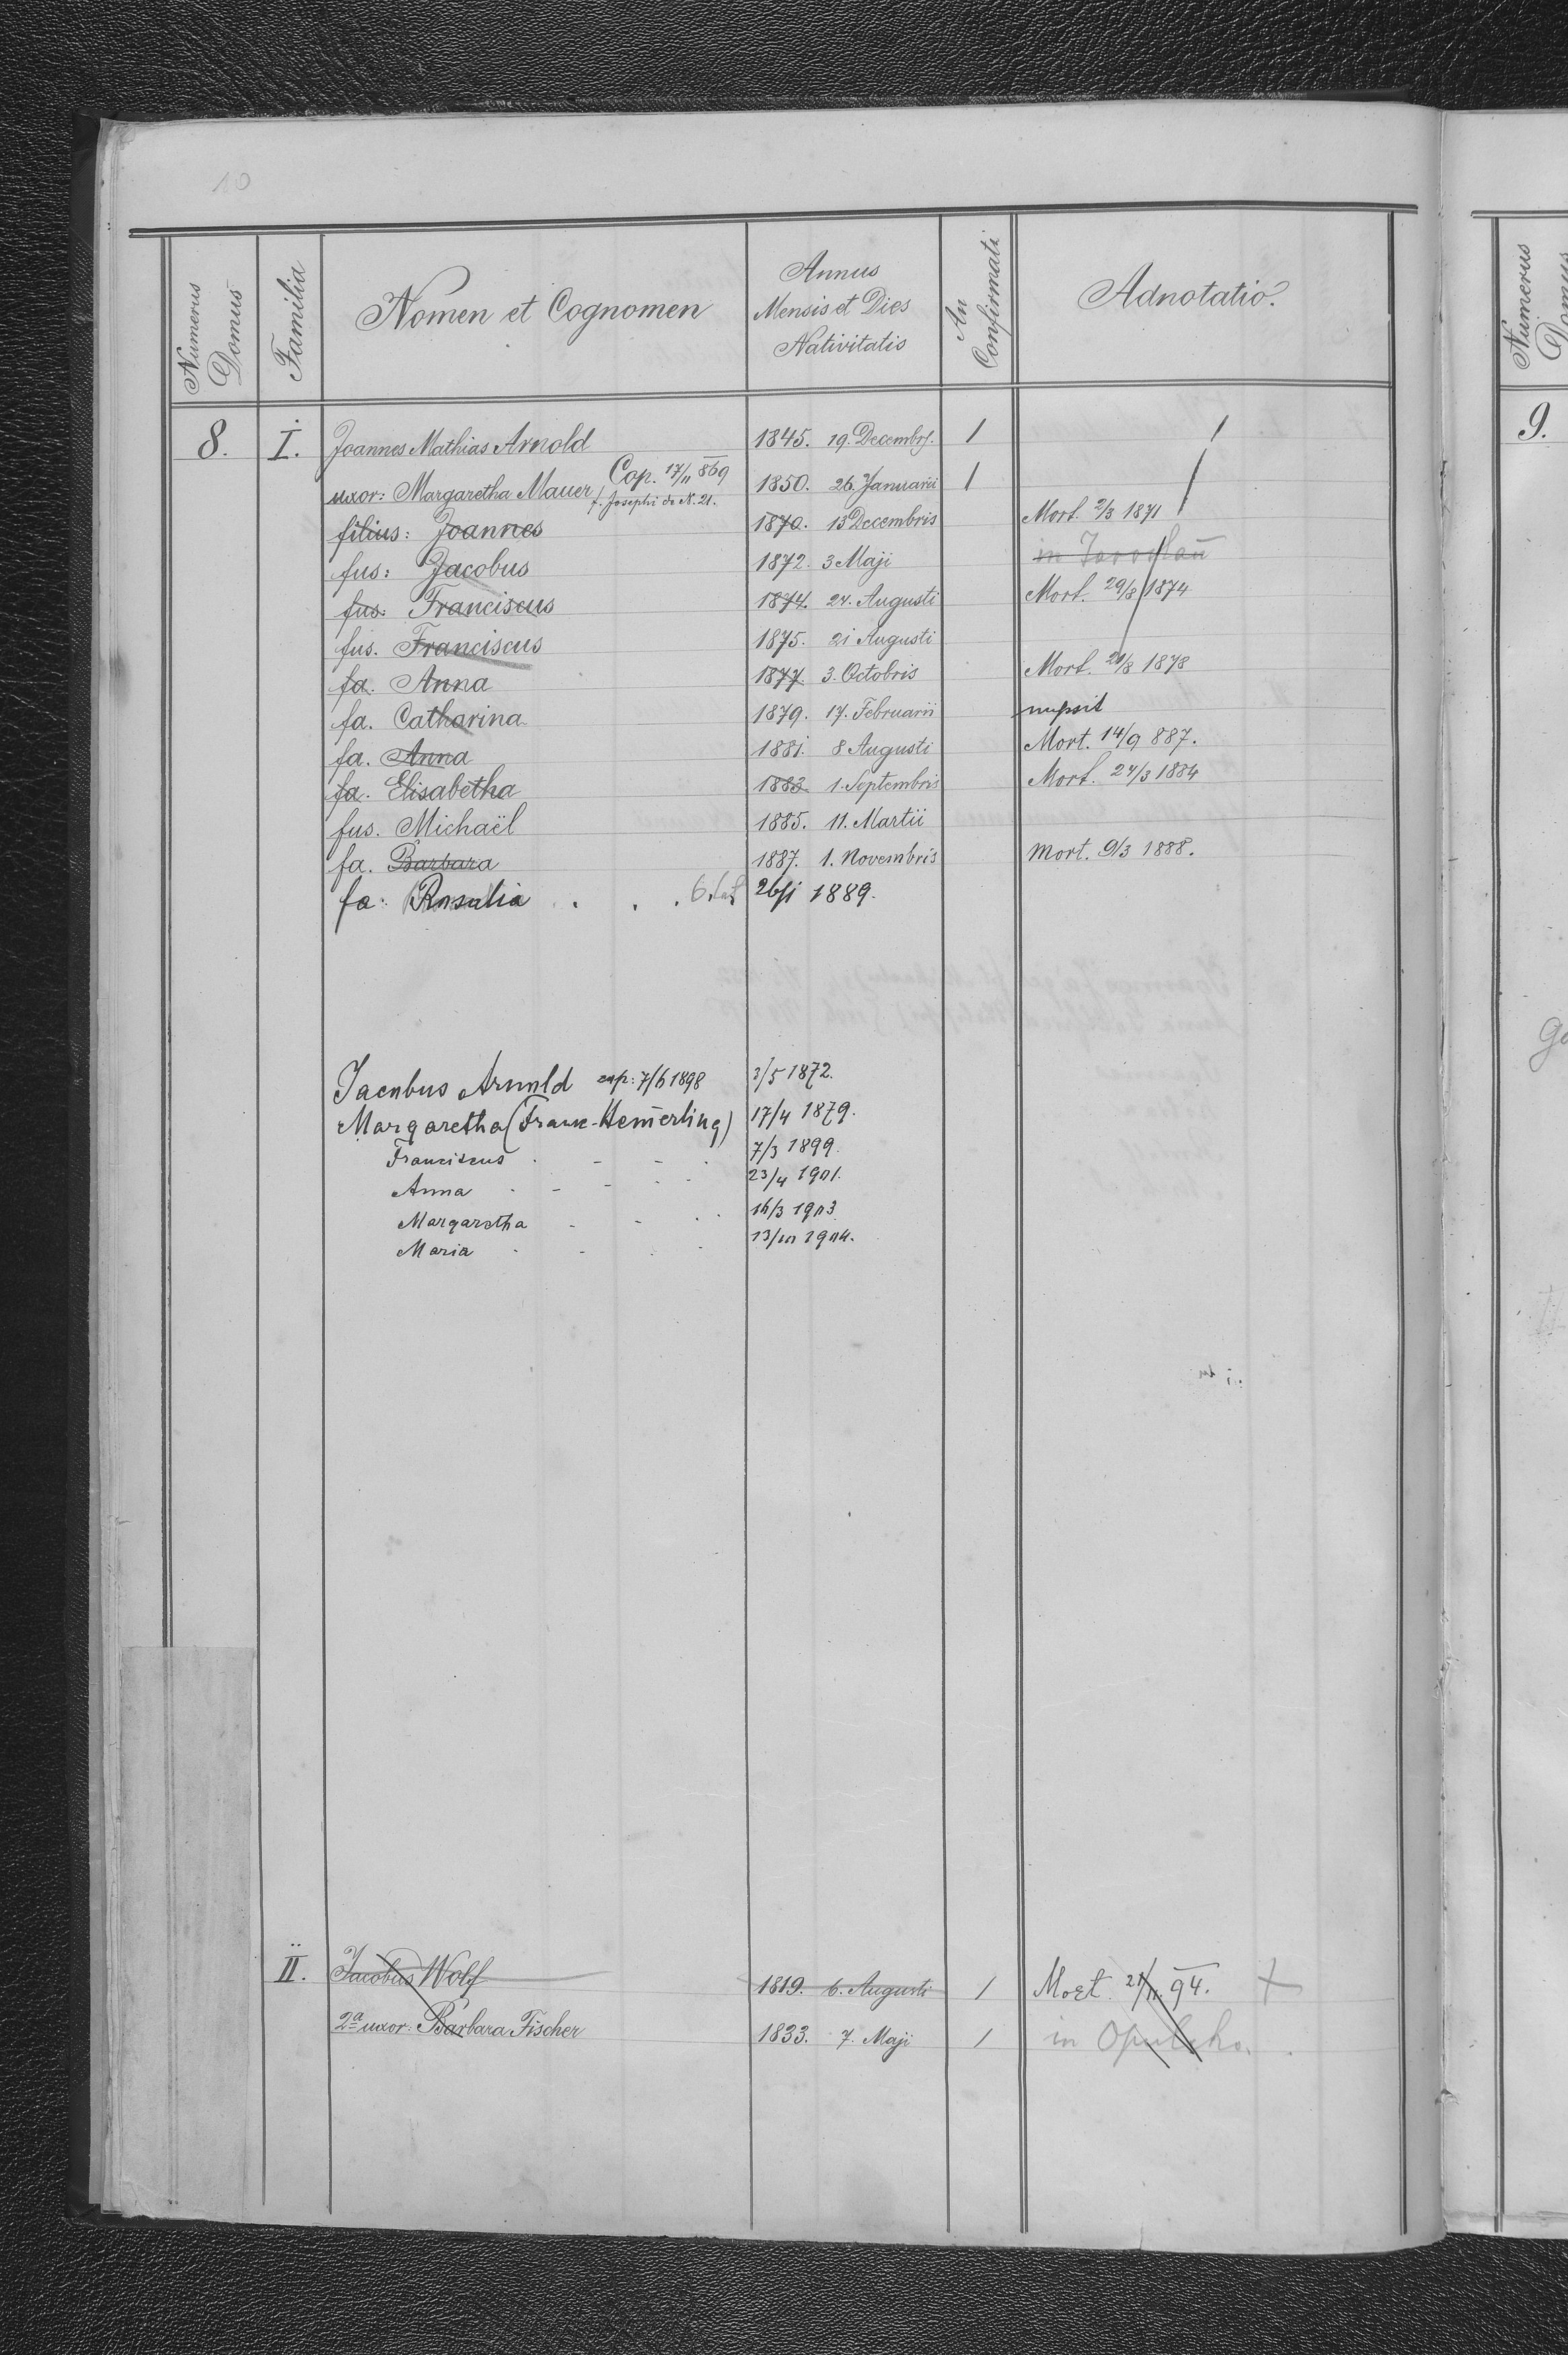 10
Numerus Domus Familia Nomen et Cognomen Annus Mensis et Dies Nativitatis An Confirmati Adnotatio.
8. I. Joannes Mathias Arnold 1845. 19. Decembr. 1
uxor: Margaretha Mauer Cop. 17/11 869 f. Josephi de N. 21. 1850. 26. Januarii 1
filius: Joannes 1870. 13 Decembris Mort. 2/3 1871
fus: Jacobus 1872. 3 Maji in
fus: Franciscus 1874. 24. Augusti Mort. 29/8 1874
fus. Franciscus 1875. 21 Augusti
fa. Anna 1877. 3. Octobris Mort. 20/8 1878
fa. Catharina 1879. 17. Februarii nupsit
fa. Anna 1881. 8 Augusti Mort. 14/9 887.
fa. Elisabetha 1883. 1. Septembris Mort. 24/3 1884
fus. Michaël 1885. 11. Martii
fa. Barbara 1887. 1. Novembris Mort. 9/3 1888.
fa: Rosalia . . . 1889.
Jacobus Arnold cop: 7/6 1898 3/5 1872.
Margaretha (Franc-Hem̄erling) 17/4 1879.
Franciscus 7/3 1899.
Anna 23/4 1901.
Margaretha 16/3 1903.
Maria 13/10 1904.
II. Jacobus Wolf 1819. 6. Augusti 1 Mort. 21/11. 94. +
2a uxor: Barbara Fischer 1833. 7. Maji 1 in
Numerus Domus
9.